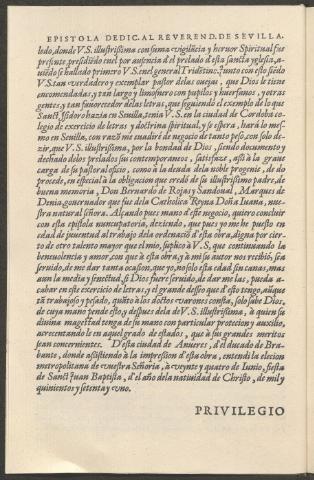 EPISTOLA DEDIC. AL REVEREND. DE SEVILLA.
ledo, donde V.S. illustrissima con suma vigilãcia y heruor Spiritual fue
presente, presidiẽdo en el por ausencia d'el prelado d'esta sancta yglesia, a-
uiẽdo se hallado primero V.S. en el general Tridẽtino: y junto con esto siẽdo
V.S. tan verdadero y exemplar pastor delas ouejas, que Dios le tiene
encomendadas, y tan largo y limosnero con pupilos y huerfanos, y otras
gentes, y tan fauorecedor delas letras, que siguiendo el exemplo de lo que
Sanct Isidoro hazia en Seuilla, tenia V.S. en la ciudad de Cordoba co-
legio de exercicio de letras y doctrina spiritual, y se espera, hará lo mes-
mo en Seuilla, con razõ me euadre de negocio de tanto peso, con solo de-
zir, que V.S. illustrissima, por la bondad de Dios, siendo documento y
dechado delos prelados sus contemporaneos, satisfaze, assi à la graue
carga de su pastoral officio, como à la deuda dela noble progenie, de do
procede, en especial à la obligacion que eredó de su illustrissimo padre, de
buena memoria, Don Bernardo de Rojas y Sandoual, Marques de
Denia, gouernador que fue dela Catholica Reyna Doña Iuana, nue-
stra natural señora. Alçando pues mano d'este negocio, quiero concluir
con esta epistola nuncupatoria, deziendo, que pues yo me he puesto en
edad de juuentud al trabajo dela ordenaciõ d'esta obra, digna por cier-
to de otro talento mayor que el mio, suplico à V.S, que continuando la
beneuolencia y amor, con que à esta obra, y à mi su autor nos recibió, sea
seruido, de me dar tanta ocasion, que yo, no solo en esta edad sin canas, mas
aun la media y senectud, si Dios fuere seruido, de dar me las, pueda a-
cabar en este exercicio de letras: y el grande desseo que d'esto tengo, aũque
tã trabajoso y pesado, quãto à los doctos varones consta, solo sabe Dios,
de cuya mano pende esto, y despues dela de V.S. illustrissima, à quien su
diuina magestad tenga de su mano con particular protection y auxilio,
acrecentando le en aquel grado de estados, que à sus grandes meritos
sean conuenientes. D'esta ciudad de Anueres, d'el ducado de Bra-
bante, donde assistiendo à la impression d'esta obra, entendi la elecion
metropolitana de vuestra Señoria, à veynte y quatro de Iunio, fiesta
de Sanct Iuan Baptista, d'el año dela natiuidad de Christo, de mil y
quinientos y setenta y vno.
PRIVILEGIO